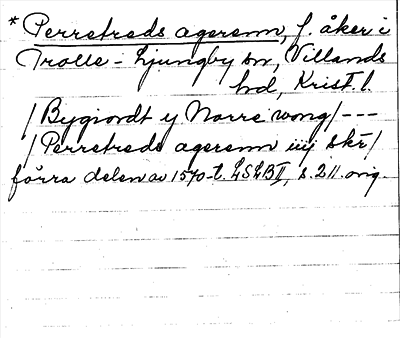 * Perretreds agerenn, f. åker i
Trolle-Ljungby sn, Villands
hd, Krist. l.
/Bygiordt y Norre wong/---
/Perretreds agerenn iiij skr/
förra delen av 1570-t. LSLB II, s. 211. orig.